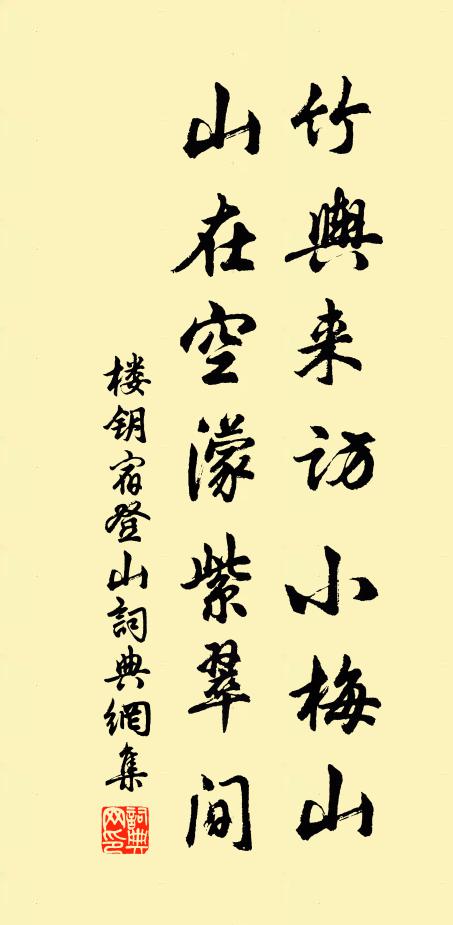 竹輿来访小梅山
山在空濛紫翠间
楼钥宿登山詞典網集
詞典網印